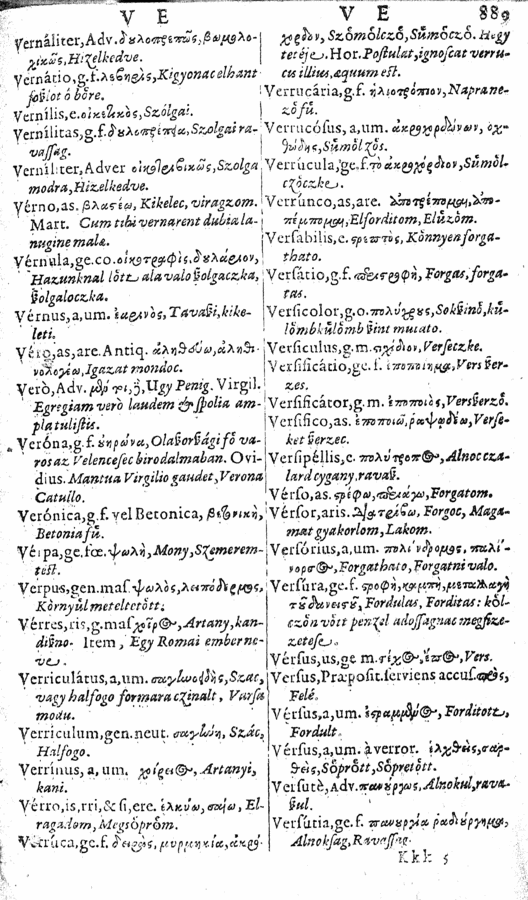 V E
Vernáliter, Adv. δουλοπρεπῶς, βωμολο-
χικῶς, Hizelkedve.
Vernátio, g.f. λεβηρὶς, Kigyonac elhant
ſoͤviot ó boͤre.
Vernílis, e. οἰκετικὸς, Szolgai.
Vernílitas, g.f. δουλοπρέπεια, Szolgai ra-
vaſſag.
Verníliter, Adver Szolga
modra, Hizelkedve.
Vérno, as. βλαστέω, Kikelec, viragzom.
Mart. Cum tibi vernarent dubia la-
nugine malæ.
Vérnula, ge.co. οἰκοτραφὶς, δουλάριον,
Hazunknal loͤtt ala valo ßolgaczka,
ßolgaloczka.
Vérnus, a, um. ἐαρινὸς, Tavaßi, kike-
leti.
Véro, as, are. Antiq. ἀληθεύω, ἀληθι-
νολογέω, Igazat mondoc.
Verò, Adv. Ugy Penig. Virgil.
Egregiam verò laudem & ſpolia am-
pla tuliſtis.
Veróna, g.f. ὀυηρώνα, Olaßorßági foͤ va-
ros az Velenceſec birodalmaban. Ovi-
dius. Mantua Virgilio gaudet, Verona
Catullo.
Verónica, g.f. vel Betonica, βετονικὴ,
Betonia fuͤ.
Vérpa, ge.fœ. ψωλὴ, Mony, Szemerem-
teſt.
Verpus, gen. maſ. ψωλὸς, λειπόδερμος,
Koͤrnyuͤl meteltetoͤtt.
Vérres, ris, g. maſ. χοῖρος, Artany, kan-
diſzno. Item, Egy Romai ember ne-
ve.
Verriculátus, a, um. σαγηνοειδὴς, Szac,
vagy halfogo formara czinalt, Varſa
modu.
Verriculátum, gen. neut. σαγήνη, Szác,
Halfogo.
Verrínus, a, um. χοίρειος, Artanyi,
kani.
Vérro, is, rri, & ſi, ere. ἑλκύω, σαίρω, El-
ragadom, Megſoͤproͤm.
Verrúca, ge.f. δειρὰς, μυρμηκία, ἀκρό-
V E 889
χορδον, Szoͤmoͤlczoͤ, Suͤmoͤczoͤ. Hegy
tetéje. Hor. Poſtulat, ignoſcat verru-
cis illius, æquum eſt.
Verrucária, g.f. ἡλιοτρόπιον, Naprane-
zoͤ fuͤ.
Verrucóſus, a, um. ἀκροχορδώνων, ὀχ-
θώδης, Suͤmoͤlzoͤs.
Verrúcula, ge.f. τὸ ἀκροχόρδιον, Suͤmoͤl-
czoͤczke.
Verrúnco, as, are. ἀποτρέπομαι, ἀπο-
πέμπομαι, Elforditom, Eluͤzoͤm.
Verſabilis, e. τρεπτὸς, Koͤnnyen forga-
thato.
Verſátio, g.f. περιστροφὴ, Forgas, forga-
tas.
Verſicolor, g.o. πολύχρους, Sokßinoͤ, kuͤ-
loͤmbkuͤloͤmb ßint mutato.
Verſiculus, g.m. στιχίδιον, Verſeczke.
Verſificátio, ge.f. ἐποποιημα, Vers ßer-
zes.
Verſificátor, g.m. ἐποποιὸς, Versßerzoͤ.
Verſifico, as. ἐποποιῶ, ῥαψωδέω, Verſe-
ket ßerzec.
Verſipéllis, e. πολύτροπος, Alnoc cza-
lard cygany, ravaß.
Vérſo, as. στρέφω, περιάγω, Forgatom.
Vérſor, aris. διατρίβω, Forgoc, Maga-
mat gyakorlom, Lakom.
Verſórius, a, um. πολίνδρομος, παλί-
νορσος, Forgathato, Forgatni valo.
Verſúra, ge.f. στροφὴ, καμπὴ, μεταλλαγὴ
τοῦ δανειστοῦ, Fordulas, Forditas: koͤl-
czoͤn voͤtt penzel adoſſagnac megfize-
zeteſe.
Vérſus, us, ge m. στίχος, ἔπος, Vers.
Verſus, Præpoſit. ſerviens accuſ. πρὸς,
Felé.
Vérſus, a, um. ἐστραμμένος, Forditott,
Fordult.
Vérſus, a, um. à verror. ἑλχθεὶς, σαρ-
θεὶς, Soͤproͤtt, Soͤpretoͤtt.
Verſutè, Adv. πανούργως, Alnokul, rava-
ßul.
Verſútia, ge.f. πανουργία ῥαδιούργημα,
Alnokſag, Ravaſſag.
Kkk 5